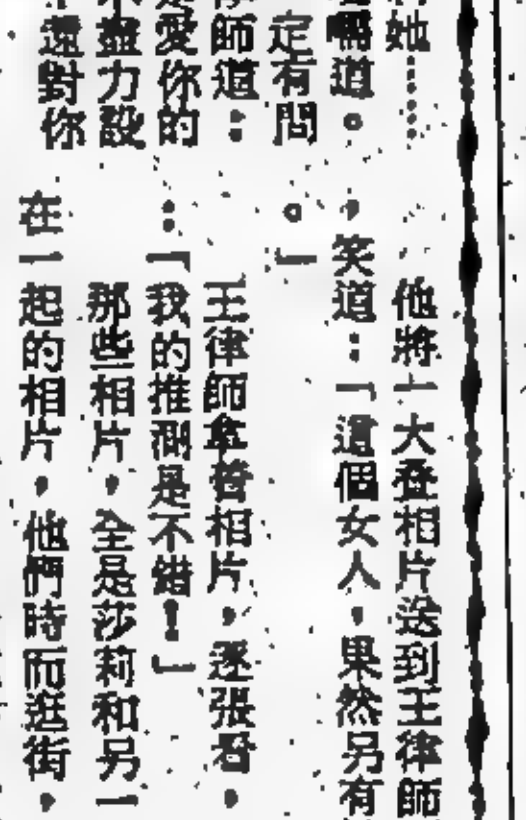 她……
道。
定有問
師道：
愛你的
盡力設
遠對你
他將一大叠相片送到王律師
，笑道：「這個女人，果然另有
。」
王律師拿着相片，逐張看，
：「我的推測是不錯！」
那些相片，全是莎莉和另一
在一起的相片，他們時而逛街，